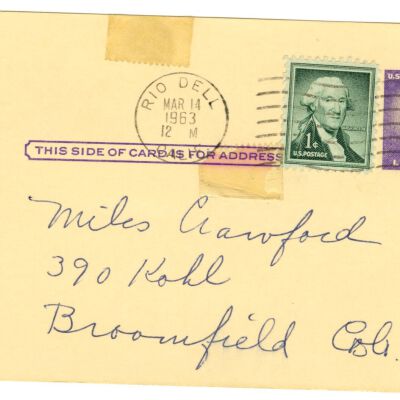 RIO DELL
MAR 14
1963
12 M
CALIF.
1¢
U.S. POSTAGE
U.S.
THIS SIDE OF CARD IS FOR ADDRESS
Miles Crawford
390 Kohl
Broomfield Colo.